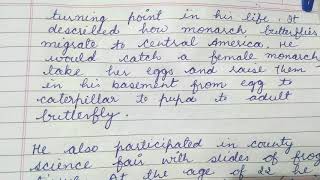 turning point in his life. It
described how monarch butterflies
migrate to central America. He
would catch a female monarch
take her eggs and raise them
in his basement from egg to
caterpillar to pupa to adult
butterfly.
He also participated in county
science fair with slides of frog
At the age of 22 he